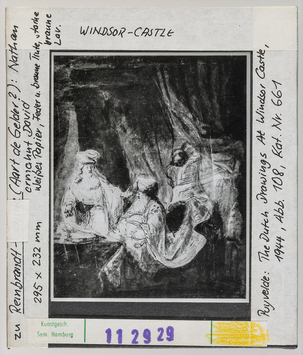 WINDSOR-CASTLE
zu Rembrandt - (Aart de Gelder?): Nathan
ermahnt David
weißes Papier, Feder u. braune Tinte, starke
braune
Lav.
295 x 232 mm
Puyvelde: The Dutch Drawings At Windsor Castle,
1944, Abb. 108, Kat. Nr. 661
Kunstgesch
Sem. Hamburg
112929